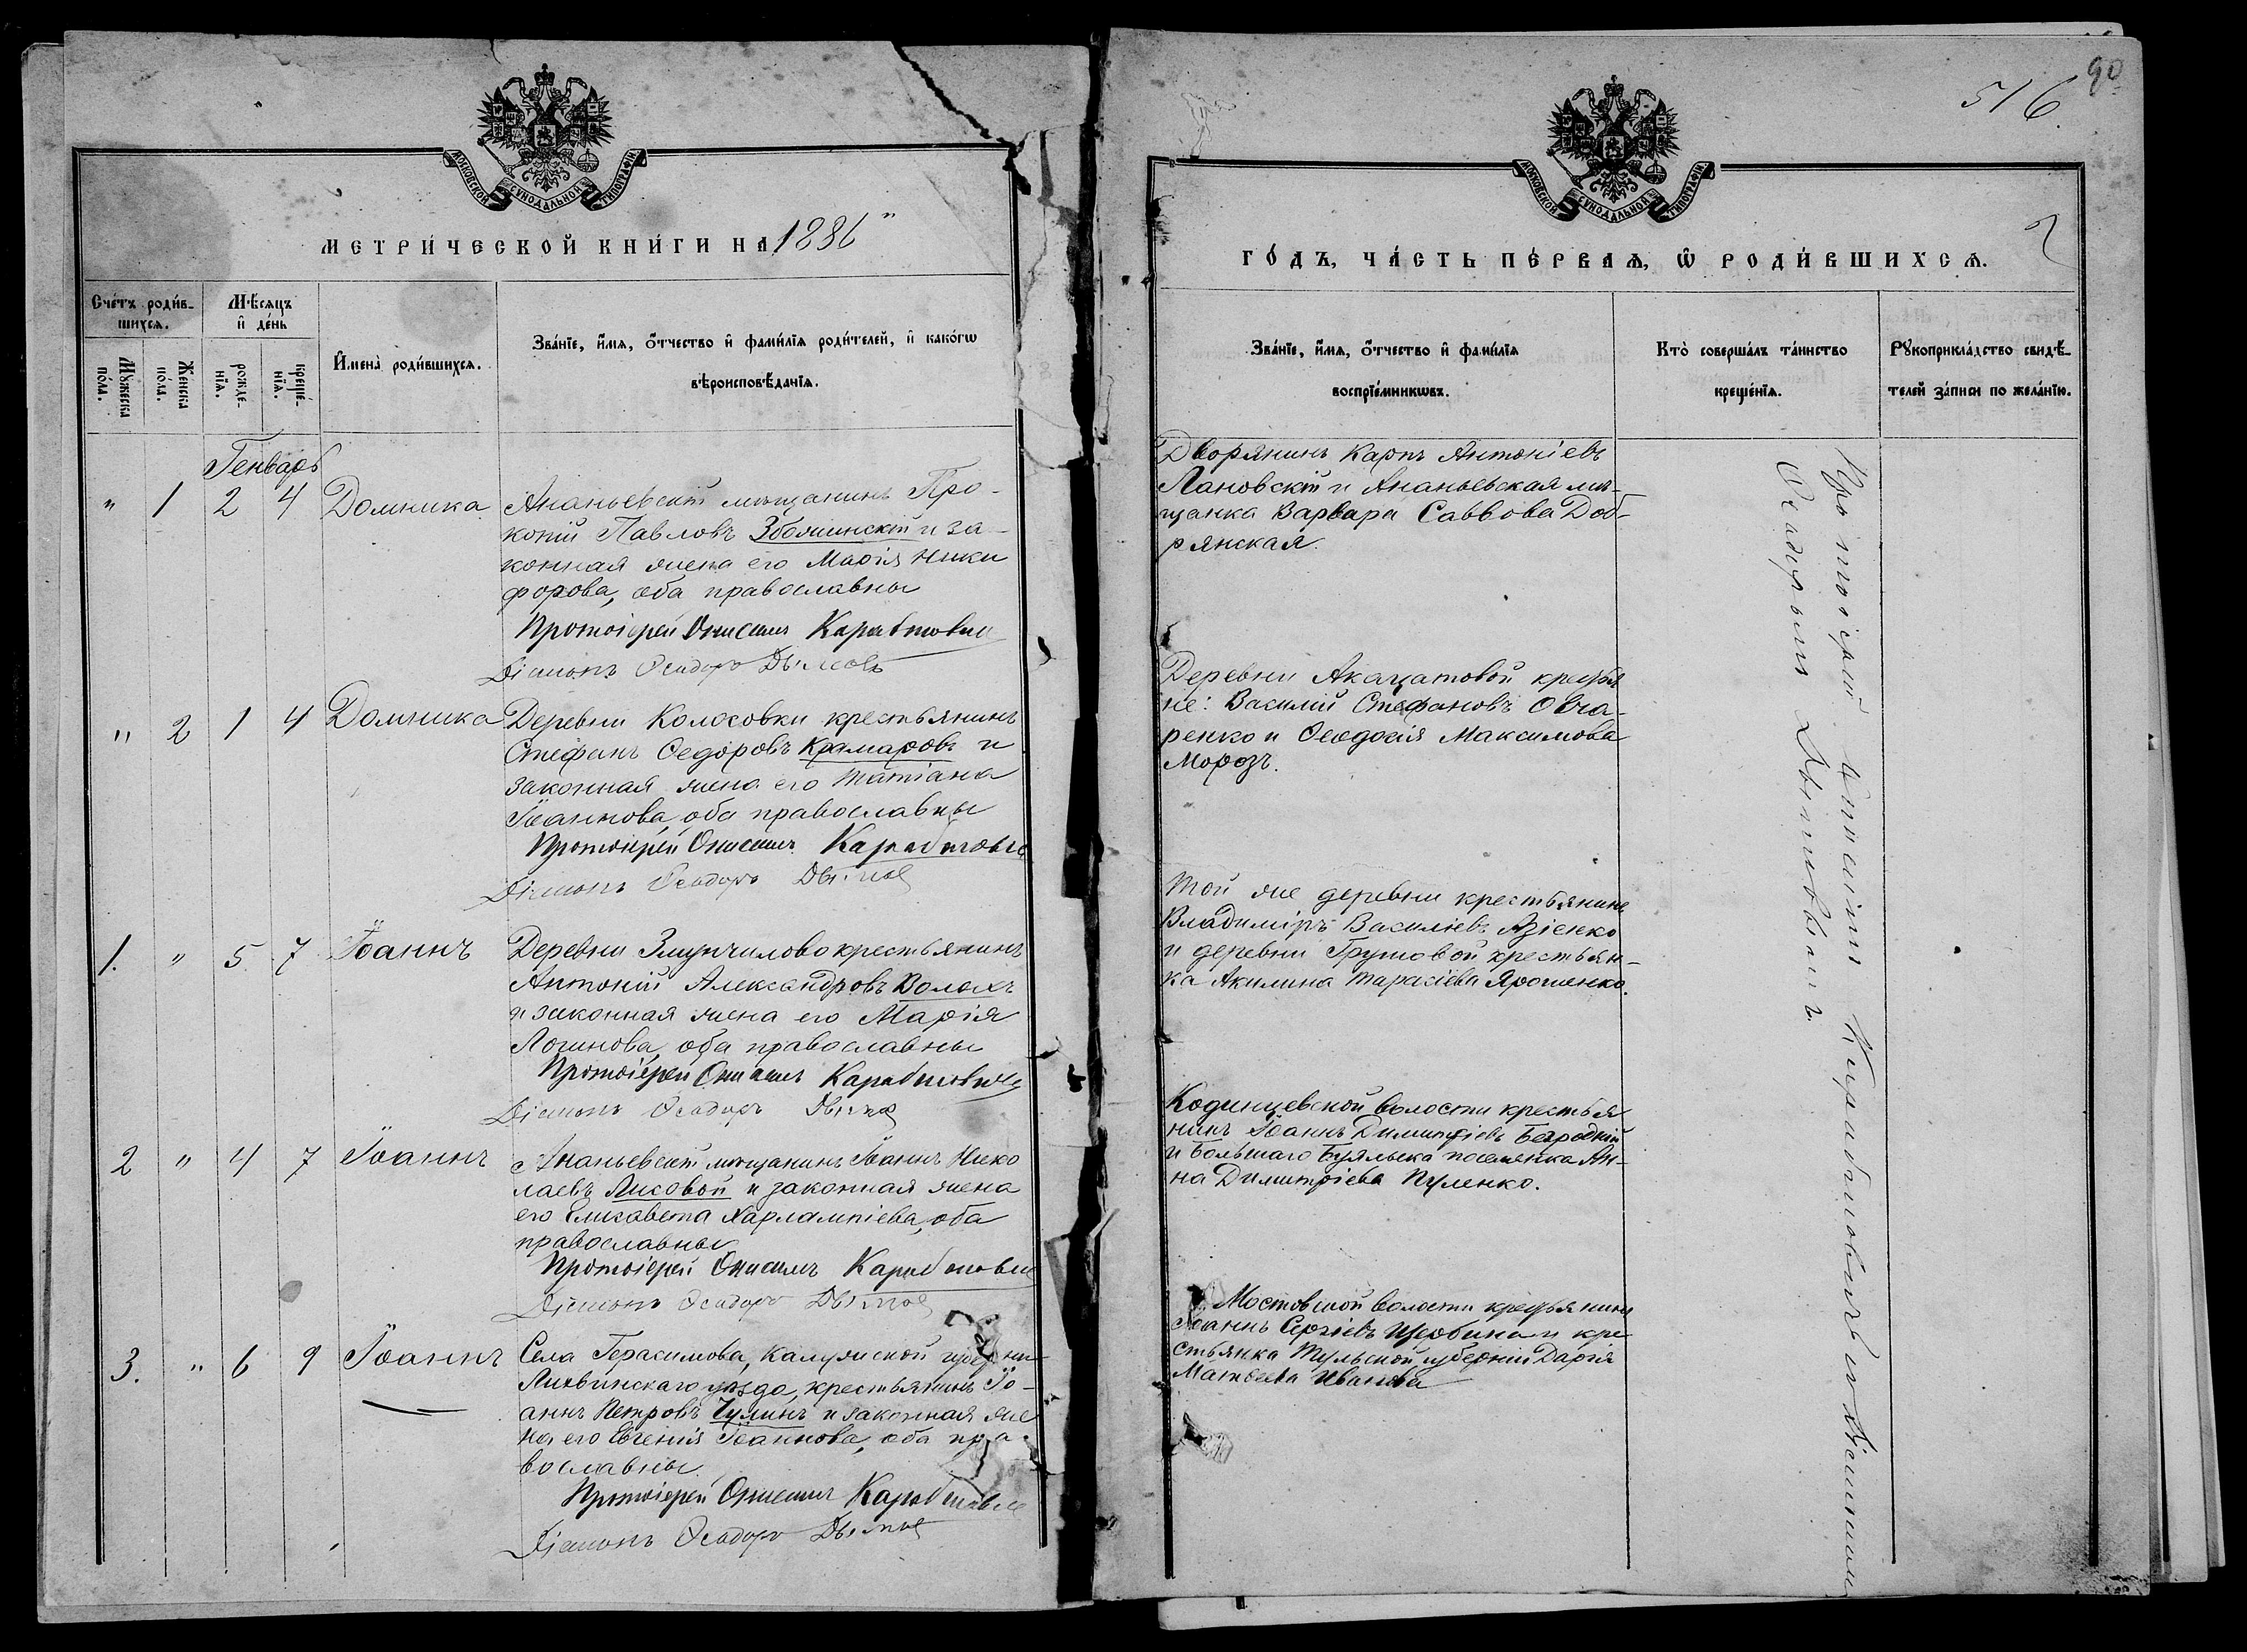 МОСКОВСКОЙ СѴНОДАЛЬНОЙ ТИПОГРАФІИ
МЕТРИ́ЧЕСКОЙ КНИ́ГИ НА 1886
Сче́тъ роди́в-
шихсѧ.
Мѣсѧцъ
и҆ де́нь
Мꙋжеска
по́ла.
Же́нска
по́ла.
рожде́-
нїѧ.
креще́-
нїѧ.
И҆мена̀ роди́вшихсѧ.
Зва́нїе, и҆́мѧ, о҆́тчество и҆ фами́лїѧ роди́телей, и҆ како́гѡ
вѣроисповѣ́данїѧ.
Генварь
" 1 2 4 Домника
Ананьевскій мѣщанинъ Про-
копій Павловъ Збояшинскій и за-
конная жена его Марія Ники
форова, оба православны
Протоіерей Онисимъ
Діаконъ Ѳеодоръ
" 2 1 4 Домника
Деревни Колосовки крестьянинъ
Стефанъ Ѳедоровъ Крамаровъ и
законная жена его Татіана
Іоаннова, оба православны
Протоіерей Онисимъ
Діаконъ Ѳеодоръ
1. " 5 7 Іоаннъ
Деревни крестьянинъ
Антоній Александровъ Волохъ
и законная жена его Марія
Логинова, оба православны
Протоіерей Онисимъ
Діаконъ Ѳеодоръ
2 " 4 7 Іоаннъ
Ананьевскій мѣщанинъ Іоаннъ Нико
лаевъ Лисовой и законная жена
его Елисавета Харлампіева, оба
православны
Протоіерей Онисимъ
Діаконъ Ѳеодоръ
3. " 6 9 Іоаннъ
Села Герасимова, Калужской губерніи
Лихвинскаго уѣзда, крестьянинъ Іо-
аннъ Петровъ Чулинъ и законная же
на его Евгенія Іоаннова, оба пра-
вославны.
Протоіерей Онисимъ
Діаконъ Ѳеодоръ
90
516
МОСКОВСКОЙ СѴНОДАЛЬНОЙ ТИПОГРАФІИ
2
ГО́ДЪ, ЧА́СТЬ ПЕ́РВАѦ, Ѡ҆ РОДИ́ВШИХСѦ.
Зва́нїе, и҆́мѧ, о҆́тчество и҆ фами́лїѧ
воспрїе́мникѡвъ.
Кто̀ соверша́лъ та́инство
креще́нїѧ.
Рꙋкоприкла́дство свидѣ́-
телей за́писи по жела́нїю.
Дворянинъ Карпъ Антоніевъ
Лановскій и Ананьевская мѣ-
щанка Варвара Саввова Доб-
рянская.
Деревни Акацатовой крестья
не: Василій Стефановъ Овча-
ренко и Ѳеодосія Максимова
Морозъ.
Той же деревни крестьянинъ
Владиміръ Василіевъ Азіенко
и деревни Грушовой крестьян-
ка Акилина Тарасіева Ярошенко.
Кодинцевской волости крестья
нинъ Іоаннъ Димитріевъ
и Большаго Буялыка поселянка Ан-
на Димитріева Пуленко.
Мостовской волости крестьянинъ
Іоаннъ Сергіевъ Щербина и кре
стьянка Тульской губерніи Дарія
Матѳеева Иванова
Протоіерей Онисимъ и Діаконъ
Ѳеодоръ